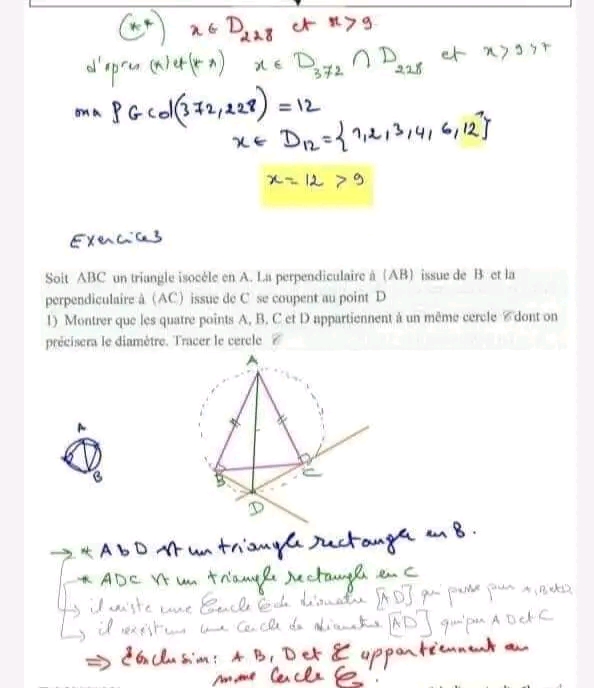 (**) x ∈ D228 et x > 9
d'après (*) et (**) x ∈ D372 ∩ D228 et x > 9
ma PGcd(372,228) = 12
x ∈ D12 = {1,2,3,4,6,12}
x = 12 > 9
Exercice3
Soit ABC un triangle isocèle en A. La perpendiculaire à (AB) issue de B et la
perpendiculaire à (AC) issue de C se coupent au point D
1) Montrer que les quatre points A, B, C et D appartiennent à un même cercle 𝒞 dont on
précisera le diamètre. Tracer le cercle 𝒞
A
A
B
B
C
D
→ * AbD st un triangle rectangle en B.
* ADC st un triangle rectangle en C
↳ il existe une Cercle 𝒞 de diamètre [AD] qui passe par A, B et D
↳ il existe une cercle de diamètre [AD] qui par A D et C
⇒ Conclusion: A B, D et C appartiennent au
même Cercle 𝒞.